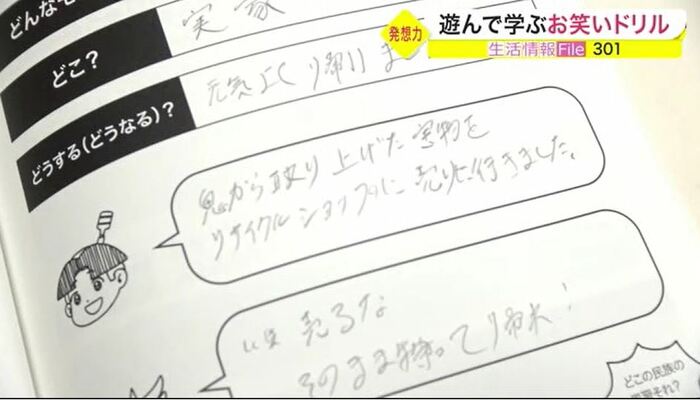 発想力
遊んで学ぶお笑いドリル
生活情報File 301
実家
どこ?
元気よく帰りま
どうする(どうなる)?
鬼から取り上げた宝物を
リサイクルショップに売りに行きました。
いや 売るな
そのまま持って帰れ!
どこの民族の
それ?